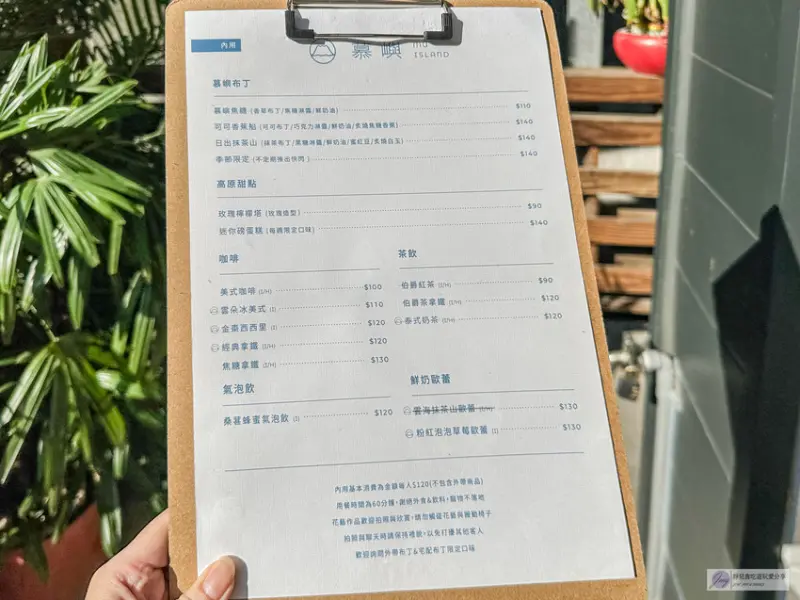 內用
慕嶼 mu ISLAND
慕嶼布丁
慕嶼焦糖 (香草布丁/焦糖淋醬/鮮奶油) $110
可可香蕉船 (可可布丁/巧克力淋醬/鮮奶油/炙燒焦糖香蕉) $140
日出抹茶山 (抹茶布丁/黑糖淋醬/鮮奶油/蜜紅豆/炙燒白玉) $140
季節限定 (不定期推出供閃) $140
高原甜點
玫瑰檸檬塔 (玫瑰造型) $90
迷你碗蛋糕 (每週限定口味) $140
咖啡
美式咖啡 (I/H) $100
雲朵冰美式 (I) $110
金棗西西里 (I) $120
經典拿鐵 (I/H) $120
焦糖拿鐵 (I/H) $130
茶飲
伯爵紅茶 (I/H) $90
伯爵茶拿鐵 (I/H) $120
泰式奶茶 (I/H) $120
氣泡飲
桑葚蜂蜜氣泡飲 (I) $120
鮮奶歐蕾
雲海抹茶山歐蕾 (I/H) $130
粉紅泡泡草莓歐蕾 (I) $130
內用基本消費為金額每人$120(不包含外帶商品)
用餐時間為60分鐘，謝絕外食&飲料，寵物不落地
花藝作品歡迎拍照與欣賞，請勿觸碰花藝與搬動椅子
拍照與聊天時請保持禮貌，以免打擾其他客人
歡迎詢問外帶布丁&宅配布丁限定口味